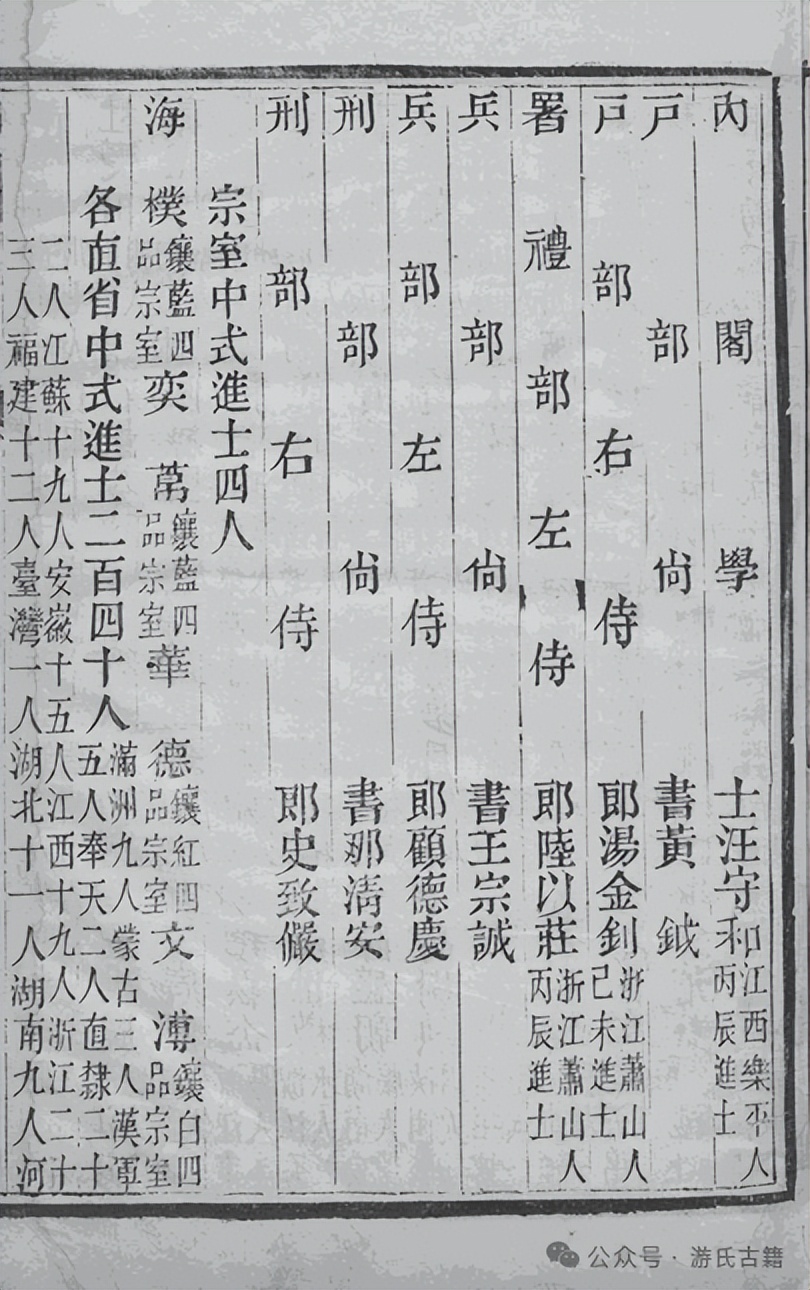 內閣學士汪守和江西樂平人丙辰進士
戶部尙書黃鉞
戶部右侍郎湯金釗浙江蕭山人己未進士
署禮部左侍郎陸以莊浙江蕭山人丙辰進士
兵部尙書王宗誠
兵部左侍郎顧德慶
刑部尙書那淸安
刑部右侍郎史致儼
宗室中式進士四人
海樸鑲藍四品宗室奕萬鑲藍四品宗室華德鑲紅四品宗室文溥鑲白四品宗室
各直省中式進士二百四十人滿洲九人蒙古三人漢軍五人奉天二人直隸二十
二人江蘇十九人安徽十五人江西十九人浙江二十
三人福建十二人臺灣一人湖北十一人湖南九人河
公众号·游氏古籍